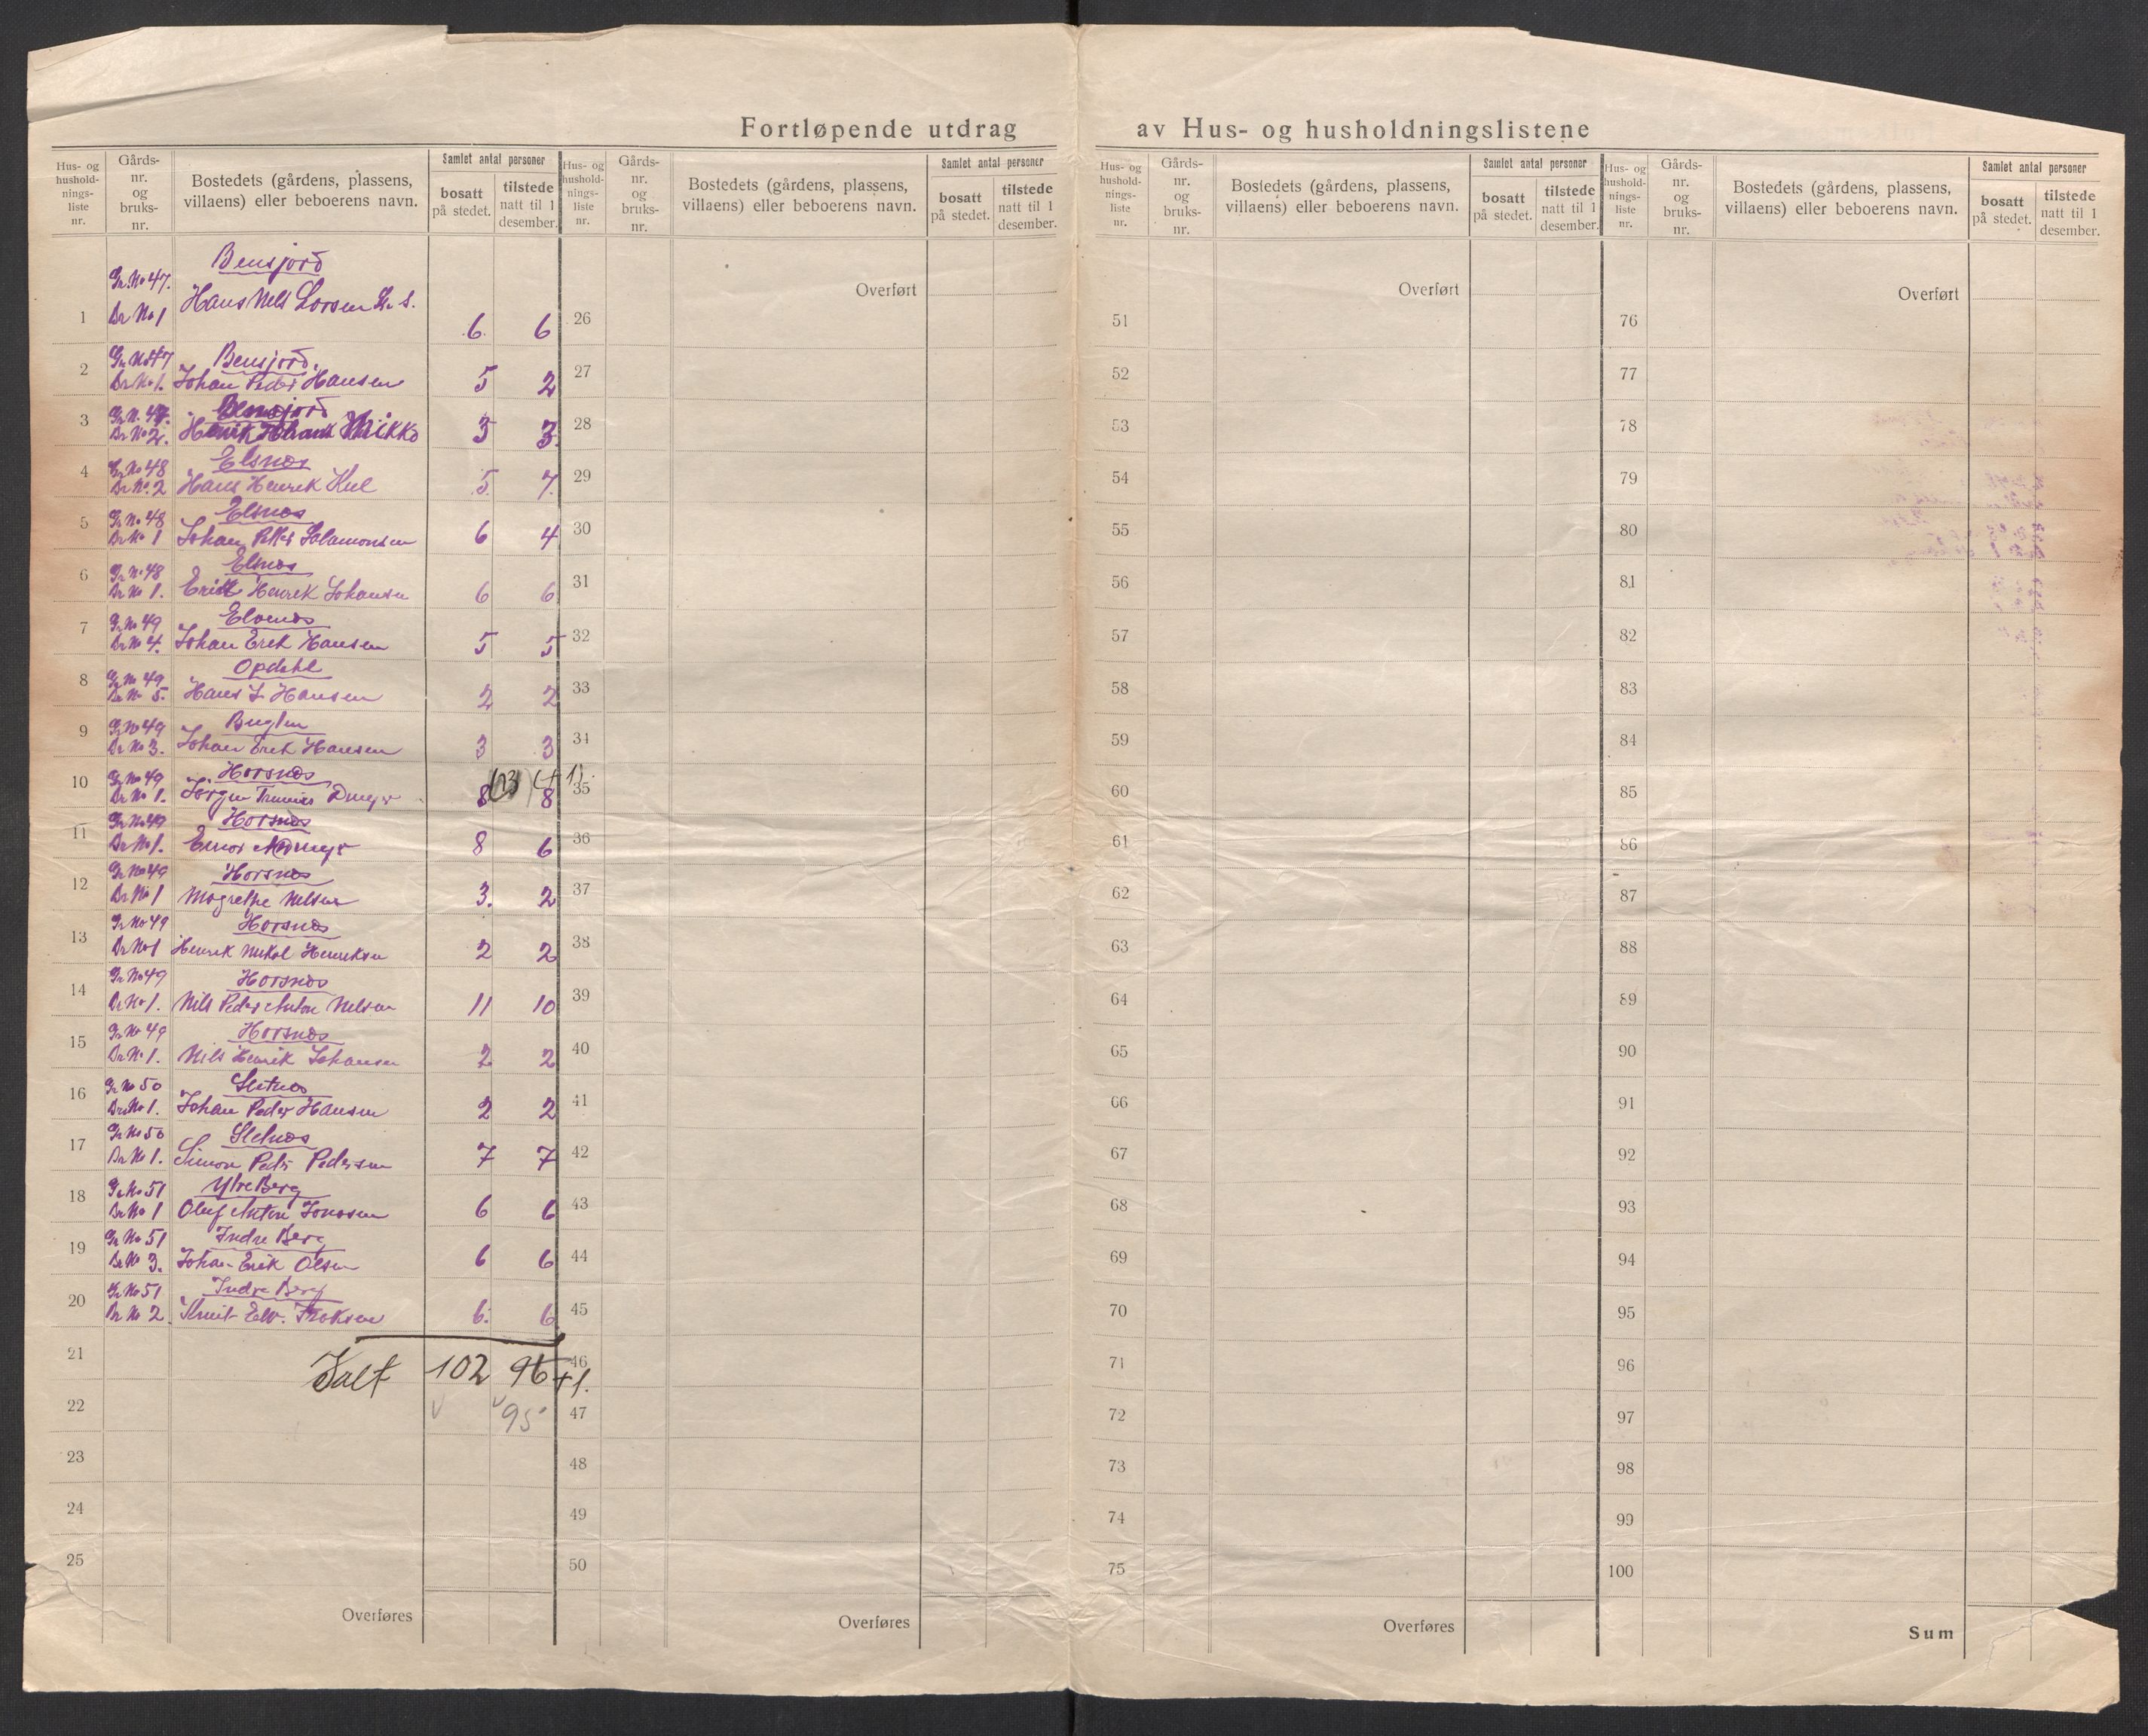 Fortløpende utdrag av Hus- og husholdningslistene
Hus- og hushold-nings-liste nr.
Gårds-nr. og bruks-nr.
Bostedets (gårdens, plassens, villaens) eller beboerens navn.
Samlet antal personer
bosatt på stedet.
tilstede natt til 1 desember.
Bensjord
Gr. No 47.
1 Br No 1 Hans Nils Larsen 6 6
Gr. No 47 Bensjord
2 Br No 1. Johan Peder Hansen 5 2
Gr. No 47. Bensjord
3 Br No 2. Mikko 3 3
Gr No 48 Elsnes
4 Br No. 2 Hans Henrik 5 7
Gr No. 48 Elsnes
5 Br No 1 Johan Peder Salamonsen 6 4
Gr No. 48 Elsnes
6 Br No 1. Erik Henrik Johansen 6 6
Gr No 49 Elvenes
7 Br No 4. Johan Erik Hansen 5 5
Gr No 49 Opdahl
8 Br No 5. Hans J. Hansen 2 2
Gr No 49
9 Br No 3. Johan Erik Hansen 3 3
Gr No 49 Horsnes
10 Br No 1. Jörgen 8 (+1). 8
Gr No 49 Horsnes
11 Br No 1. 8 6
Gr No 49 Horsnes
12 Br No 1 Magrethe Nelsen 3. 2
Gr No 49 Horsnes
13 Br No 1 Henrik Mikal Henriksen 2 2
Gr No 49 Horsnes
14 Br No 1. Nils Peder Anton Nelsen 11 10
Gr No 49 Horsnes
15 Br No 1. Nils Henrik Johansen 2 2
Gr No 50 Sletnes
16 Br No 1. Johan Peder Hansen 2 2
Gr No 50 Sletnes
17 Br No 1. Simon Peder Pedersen 7 7
Gr No 51 Ytre Berg
18 Br No 1 Oluf Anton Jonasen 6 6
Gr No 51 Indre Berg
19 Br No 3. Johan Erik Olsen 6 6
Gr No 51 Indre Berg
20 Br No 2. Knut Edv. 6. 6
21 Ialt 102 96 +1.
22 95
23
24
25
Overføres
Hus- og hushold-nings-liste nr.
Gårds-nr. og bruks-nr.
Bostedets (gårdens, plassens, villaens) eller beboerens navn.
Samlet antal personer
bosatt på stedet.
tilstede natt til 1 desember.
Overført
26
27
28
29
30
31
32
33
34
35
36
37
38
39
40
41
42
43
44
45
46
47
48
49
50
Overføres
Hus- og hushold-nings-liste nr.
Gårds-nr. og bruks-nr.
Bostedets (gårdens, plassens, villaens) eller beboerens navn.
Samlet antal personer
bosatt på stedet.
tilstede natt til 1 desember.
Overført
51
52
53
54
55
56
57
58
59
60
61
62
63
64
65
66
67
68
69
70
71
72
73
74
75
Overføres
Hus- og hushold-nings-liste nr.
Gårds-nr. og bruks-nr.
Bostedets (gårdens, plassens, villaens) eller beboerens navn.
Samlet antal personer
bosatt på stedet.
tilstede natt til 1 desember.
Overført
76
77
78
79
80
81
82
83
84
85
86
87
88
89
90
91
92
93
94
95
96
97
98
99
100
Sum